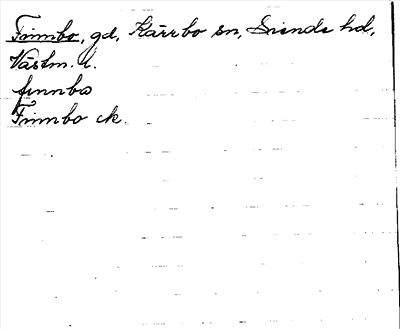 Finnbo, gd, Kärrbo sn, Siende hd,
Västm. l.
finnbo
Finnbo ck.